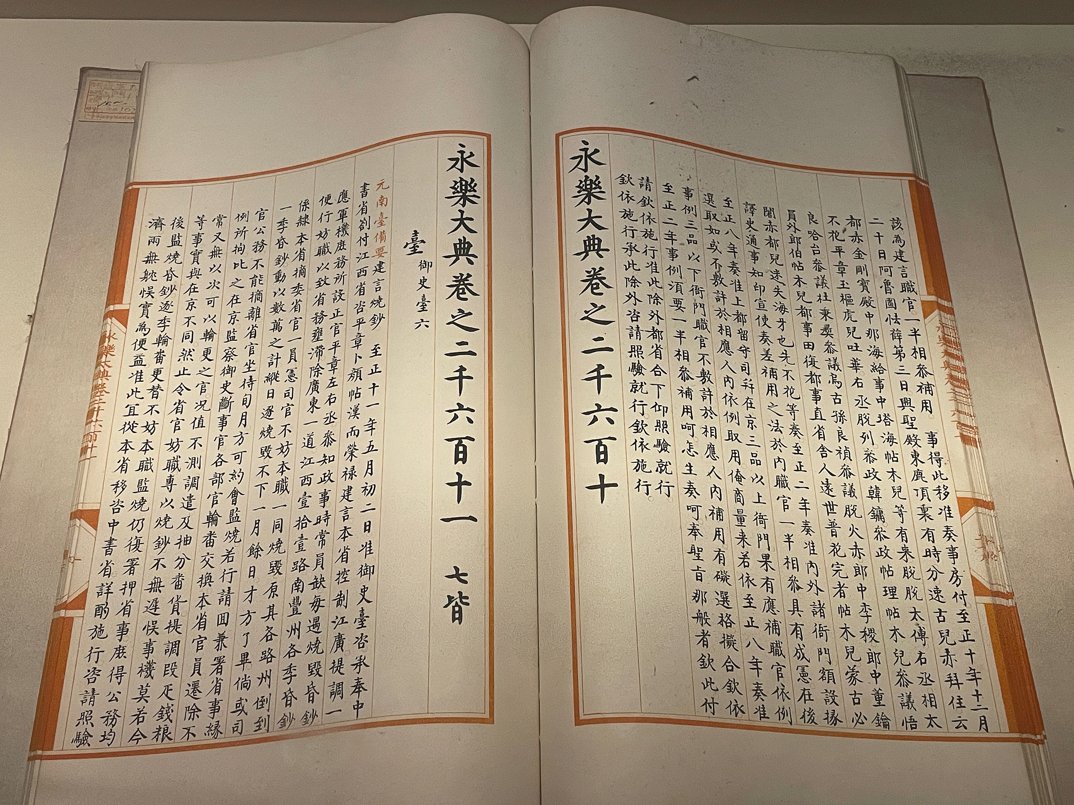 該爲建言職官一半相叅補用　事得此移准奏事房付至正十年十二月
二十日阿魯圖怯薛第三日興聖殿東鹿頂裏有時分速古兒赤拜住云
都赤金剛寶殿中那海給事中塔海帖木兒等有來脫脫太傅右丞相太
不花平章玉樞虎兒吐華右丞脫列叅政韓鏞叅政帖理帖木兒叅議悟
良哈台叅議杜秉彝叅議烏古孫良禎叅議脫火赤郎中李稷郎中董鑰
員外郎伯帖木兒都事田復都事直省舍人逺世普花完者帖木兒蒙古必
闍赤都兒迷失海牙也先不花等奏至正二年奏准內外諸衙門額設掾
譯史通事知印宣使奏差補用之法於內職官一半相叅具有成憲在後
至正八年奏准上都留守司并在京三品以上衙門果有應補職官依例
選取如或不敷計於相應人內依例取用俺商量來若依至正八年奏准
事例三品以下衙門職官不敷計於相應人內補用有礙選格擬合欽依
至正二年事例須要一半相叅補用呵怎生奏呵奉聖旨那般者欽此付
請欽依施行准此除外都省合下仰照驗就行
欽依施行承此除外咨請照驗就行欽依施行
永樂大典卷之二千六百十
永樂大典卷之二千六百十一　七皆
臺　御史臺六
元南臺備要建言燒鈔　至正十一年五月初二日准御史臺咨承奉中
書省劄付江西省咨平章卜顏帖漢而榮祿建言本省控制江廣提調一
應軍機庶務所設正官平章左右丞叅知政事時常員缺每遇燒毀昏鈔
便行妨職以致省務壅滯除廣東一道江西壹拾壹路南豐州各季昏鈔
係隸本省摘委省官一員憲司官不妨本職一同燒毀原其各路州倒到
一季昏鈔動以數萬之計縱日逐燒毀不下一月餘日才方了畢倘或司
官公務不能摘離省官坐待旬月方可約會監燒若行請囬兼署省事縁
例所拘比之在京監察御史斷事官各部官輪畨交換本省官員遷除不
常又無以次可以輪更之官况值不測調遣及抽分畨貨提調叚疋錢粮
等事實與在京不同然止令省官妨職專以燒鈔不無遲悞事機莫若今
後監燒昏鈔逐季輪畨更替不妨本職監燒仍復署押省事庶得公務均
濟兩無躭悞實爲便益准此宜從本省移咨中書省詳酌施行咨請照驗